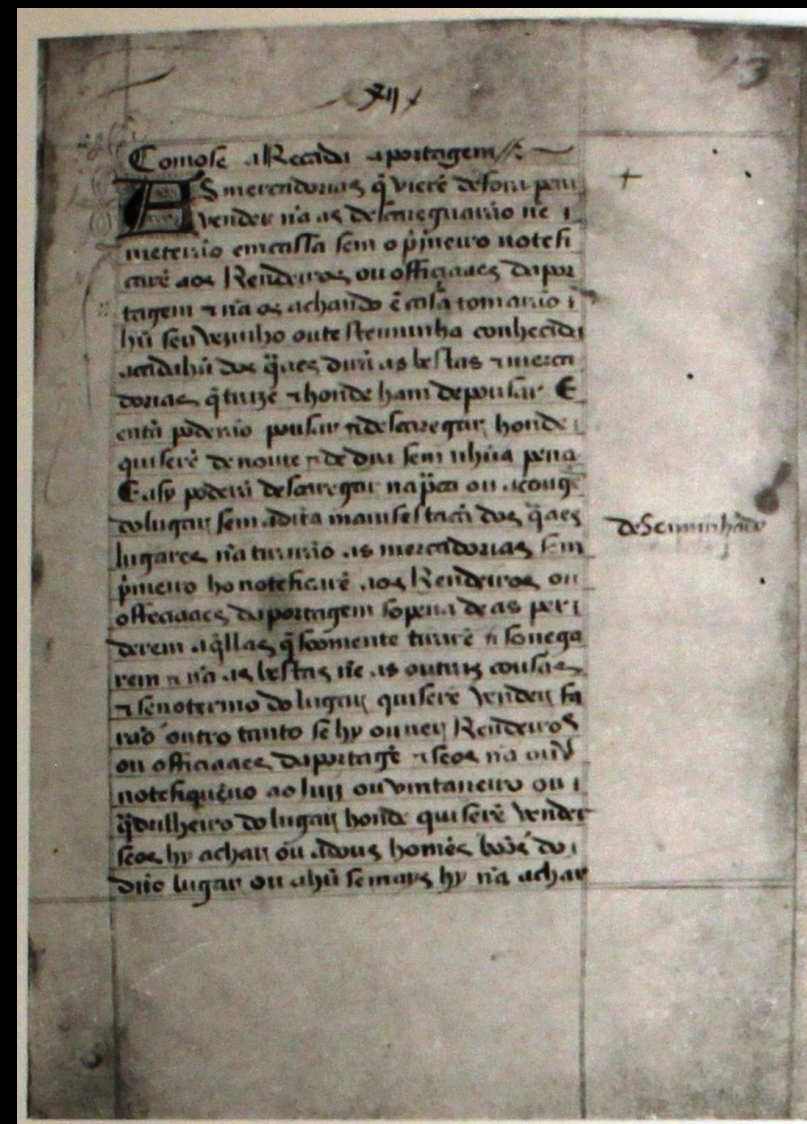 xij
13
Como se a Recada a portagem
AS mercadorias q̃ vierẽ de fora pera
vender nã as descarreguarão nẽ
meterão em casa sem o p̃meiro notefi
carẽ aos Rendeiros ou officiaaes da por
tagem ⁊ nã os achando ẽ casa tomarão
hũ seu vezinho ou testemunha conhecida
a cada hũ dos q̃aes dirã as bestas ⁊ merca
dorias q̃ trazẽ ⁊ honde ham de pousar E
entã poderão pousar ⁊ descarregar honde
quiserẽ de noute ⁊ de dia sem nhũa pena
E asy poderã descarregar na p̃ça ou açougẽ
do lugar sem a dita manifestaçã dos q̃aes
lugares nã tirarão as mercadorias sem
p̃meiro ho noteficarẽ aos Rendeiros ou
officiaaes da portagem so pena de as per
derem aq̃llas q̃ soomente tirarẽ ⁊ sonega
rem ⁊ nã as bestas nẽ as outras cousas
⁊ se no termo do lugar quiserẽ vender fa
rão outro tanto se hy ouuer Rendeiros
ou officiaaes da portagẽ ⁊ se os nã ouuer
notefiquẽno ao Juiz ou vintaneiro ou
q̃drilheiro do lugar honde quiserẽ vender
se os hy achar ou a dous homẽs boõs do
dito lugar ou a hũ se mays hy nã achar